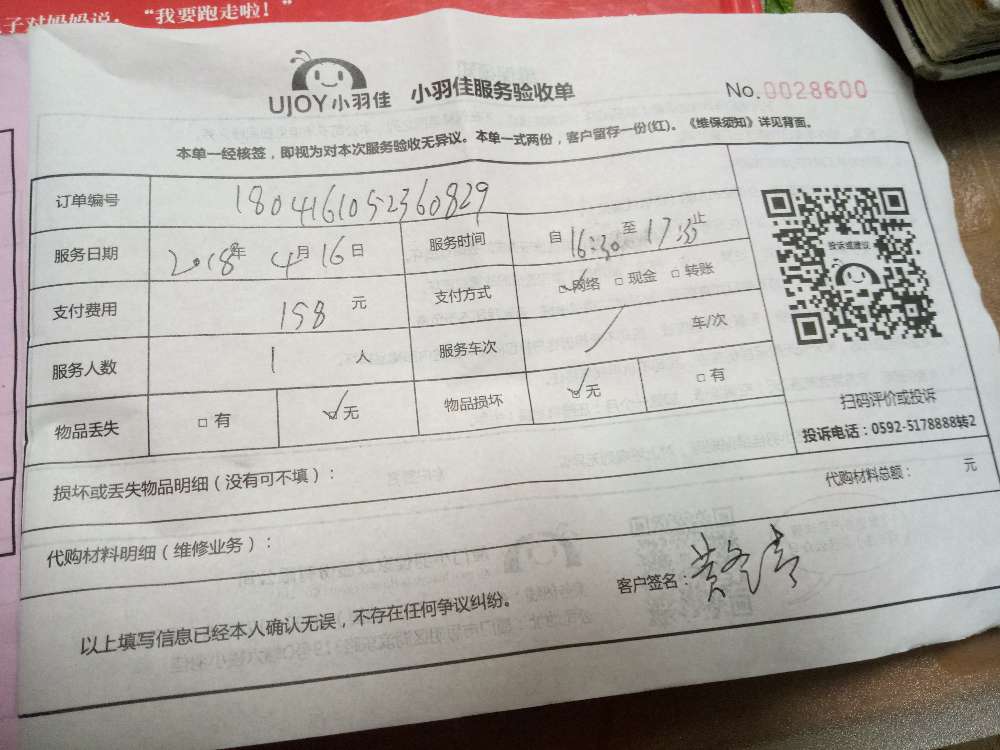 子对妈妈说，“我要跑走啦！”
UJOY小羽佳 小羽佳服务验收单 No.0028600
本单一经核签，即视为对本次服务验收无异议。本单一式两份，客户留存一份(红)。《维保须知》详见背面。
订单编号 1804161052360829
服务日期 2018年 4月16日 服务时间 自 16:30 至 17:33 止
支付费用 158 元 支付方式 ☑网络 □现金 □转账
服务人数 1 人 服务车次 / 车/次
物品丢失 □有 ☑无 物品损坏 ☑无 □有
投诉或建议
扫码评价或投诉
投诉电话：0592-5178888转2
损坏或丢失物品明细（没有可不填）：
代购材料明细（维修业务）： 代购材料总额： 元
以上填写信息已经本人确认无误，不存在任何争议纠纷。 客户签名：